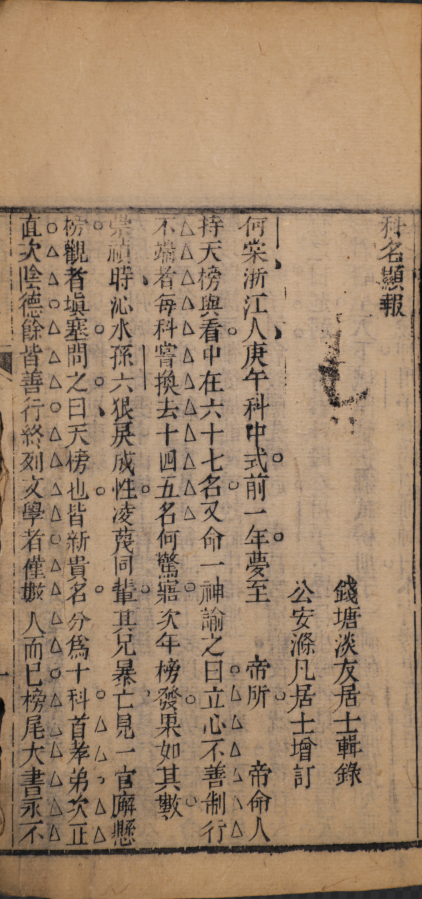 科名顯報
錢塘淡友居士輯錄
公安滌凡居士增訂
何棠浙江人庚午科中式前一年夢至　帝所　帝命人
持天榜與看中在六十七名又命一神諭之曰立心不善制行
不端者每科嘗換去十四五名何驚寤次年榜發果如其數
崇禎時沁水孫六狠戾成性凌蔑同輩其兄暴亡見一官廨懸
榜觀者塡塞問之曰天榜也皆新貴名分爲十科首孝弟次正
直次陰德餘皆善行終列文學者僅數人而已榜尾大書永不